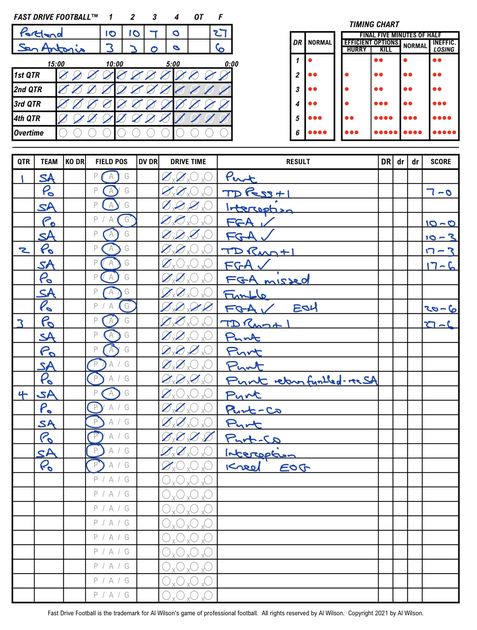 FAST DRIVE FOOTBALL™ 1 2 3 4 OT F
Portland 10 10 7 0 27
San Antonio 3 3 0 0 6
15:00 10:00 5:00 0:00
1st QTR
2nd QTR
3rd QTR
4th QTR
Overtime
TIMING CHART
FINAL FIVE MINUTES OF HALF
DR NORMAL EFFICIENT OPTIONS NORMAL INEFFIC.
HURRY KILL LOSING
1
2
3
4
5
6
QTR TEAM KO DR FIELD POS DV DR DRIVE TIME RESULT DR dr dr SCORE
1 SA P A G Punt
Po A TD Pass+1 7-0
SA A Interception
Po P / A / G FGA ✓ 10-0
SA A FGA ✓ 10-3
2 Po A TD Run+1 17-3
SA A FGA ✓ 17-6
Po A FGA missed
SA A Fumble
Po P / A / G FGA ✓ EOH 20-6
3 Po A TD Run+1 27-6
SA A Punt
Po A Punt
SA P A / G Punt
Po P A / G Punt return fumbled-rec SA
4 SA P A G Punt
Po P A / G Punt-Co
SA P A / G Punt
Po P A / G Punt-Co
SA P A / G Interception
Po P A / G Kneel EOG
P / A / G
P / A / G
P / A / G
P / A / G
P / A / G
P / A / G
P / A / G
P / A / G
P / A / G
Fast Drive Football is the trademark for Al Wilson's game of professional football. All rights reserved by Al Wilson. Copyright 2021 by Al Wilson.